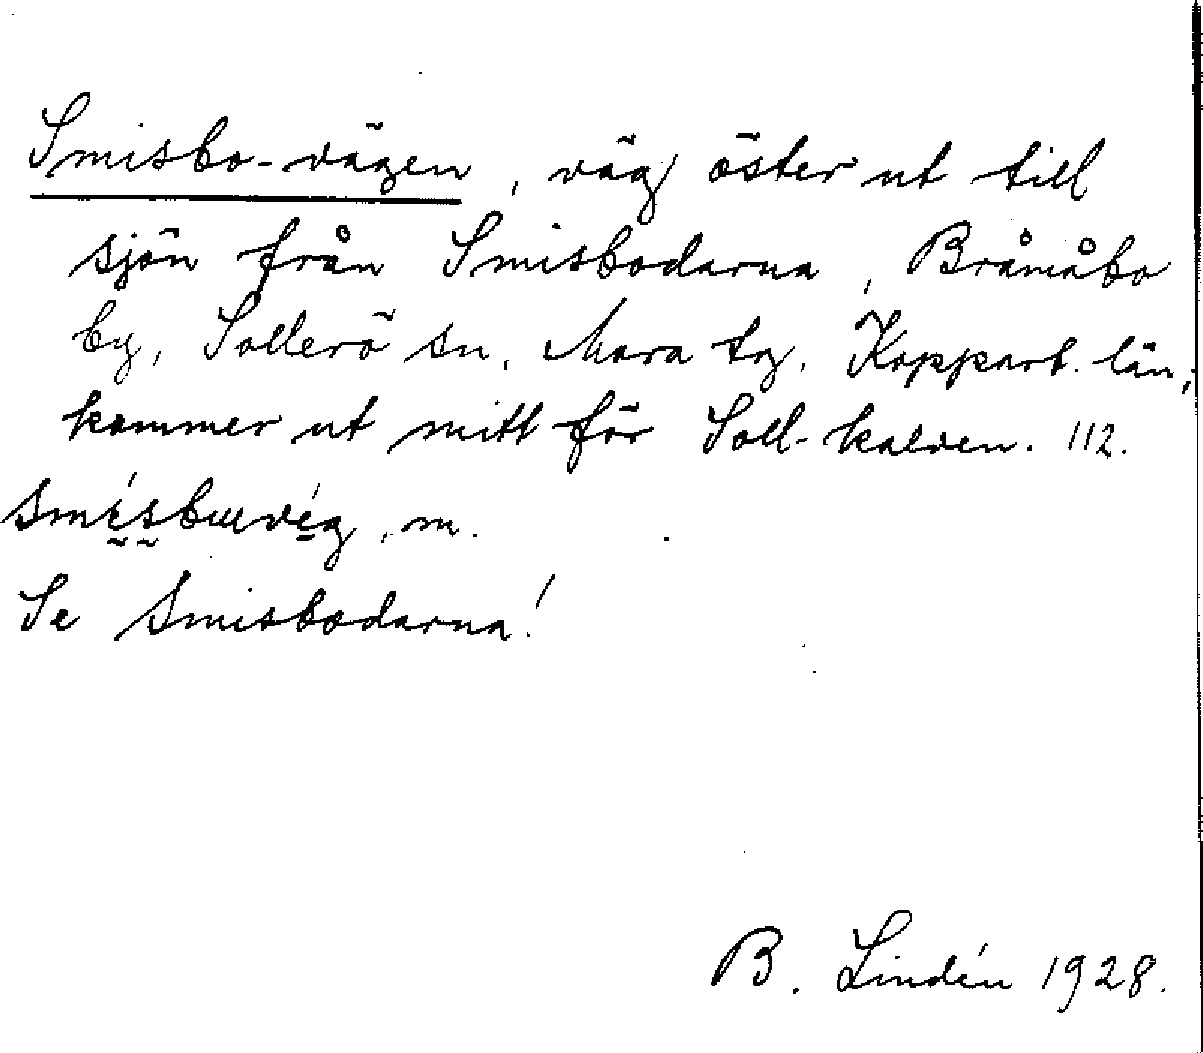 Smisbo-vägen, väg öster ut till
sjön från Smisbodarna, Bråmåbo
by, Sollerö sn, Mora tg. Kopparb. län,
kommer ut mitt för Soll-kalven. 112.
smísbɯvég, m.
Se Smisbodarna!
B. Lindén 1928.